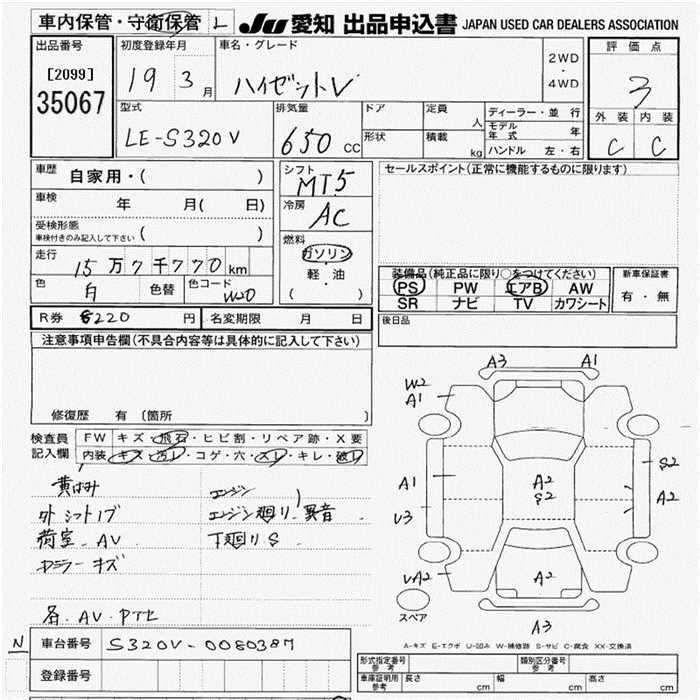 車内保管・守衛保管 L JU 愛知 出品申込書 JAPAN USED CAR DEALERS ASSOCIATION
出品番号 初度登録年月 車名・グレード 2WD・4WD 評価点
[2099] 19 3月 ハイゼットV 3
35067
型式 排気量 ドア 定員 人 ディーラー・並行 外装 内装
LE-S320V 650 cc 形状 積載 kg モデル年式 年 C C
ハンドル 左・右
車歴 自家用・( ) シフト MT5 セールスポイント(正常に機能するものに限ります)
車検 年 月( 日) 冷房 AC
受検形態 車検付きのみ記入して下さい ( )
燃料 ガソリン 軽・油 ( )
走行 15万7千770km
色 白 色替 色コード W20
装備品(純正品に限り○をつけてください) 新車保証書
PS PW エアB AW 有・無
SR ナビ TV カワシート
R券 8220 円 名変期限 月 日 後日品
注意事項申告欄(不具合内容等は具体的に記入して下さい)
修復歴 有 〔箇所 〕
検査員記入欄 FW キズ・飛石・ヒビ割・リペア跡・X要
内装 キズ・汚レ・コゲ・穴・スレ・キレ・破レ
エンジン
外シフトノブ エンジン廻り異音
荷室 AV 下廻りS
ミラーキズ
各 AV・
A3 A1
W2
A1
A1 A2 S2 S2
A2
U3
UA2 A2
スペア
A3
A-キズ E-エクボ U-凹み W-補修跡 S-サビ C-腐食 XX-交換済
N 車台番号 S320V-0080387
登録番号
型式指定番号 参考 類別区分番号 参考
車庫証明用 参考 長さ cm 幅 cm 高さ cm